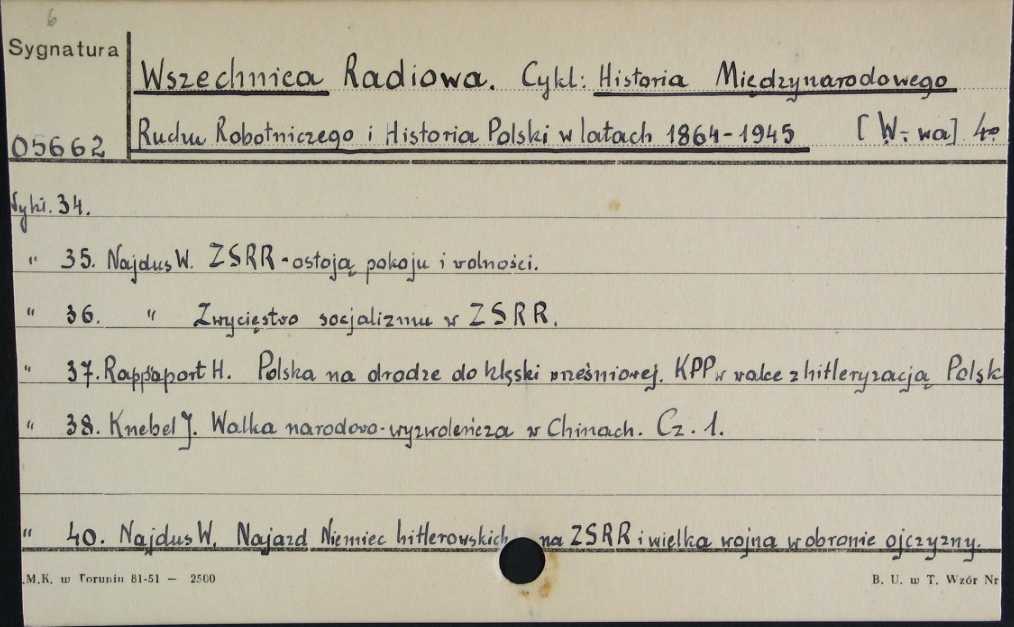 6
Sygnatura
Wszechnica Radiowa. Cykl: Historia Międzynarodowego
05662 Ruchu Robotniczego i Historia Polski w latach 1864-1945 [W-wa] 4°
Wykł. 34.
" 35. Najdus W. ZSRR - ostoją pokoju i wolności.
" 36. " Zwycięstwo socjalizmu w ZSRR.
" 37. Rappaport H. Polska na drodze do klęski wrześniowej. KPP w walce z hitleryzacją Polsk
" 38. Knebel J. Walka narodowo-wyzwoleńcza w Chinach. Cz. 1.
" 40. Najdus W. Najazd Niemiec hitlerowskich na ZSRR i wielka wojna w obronie ojczyzny.
.M.K. w Toruniu 81-51 — 2500
B. U. w T. Wzór Nr